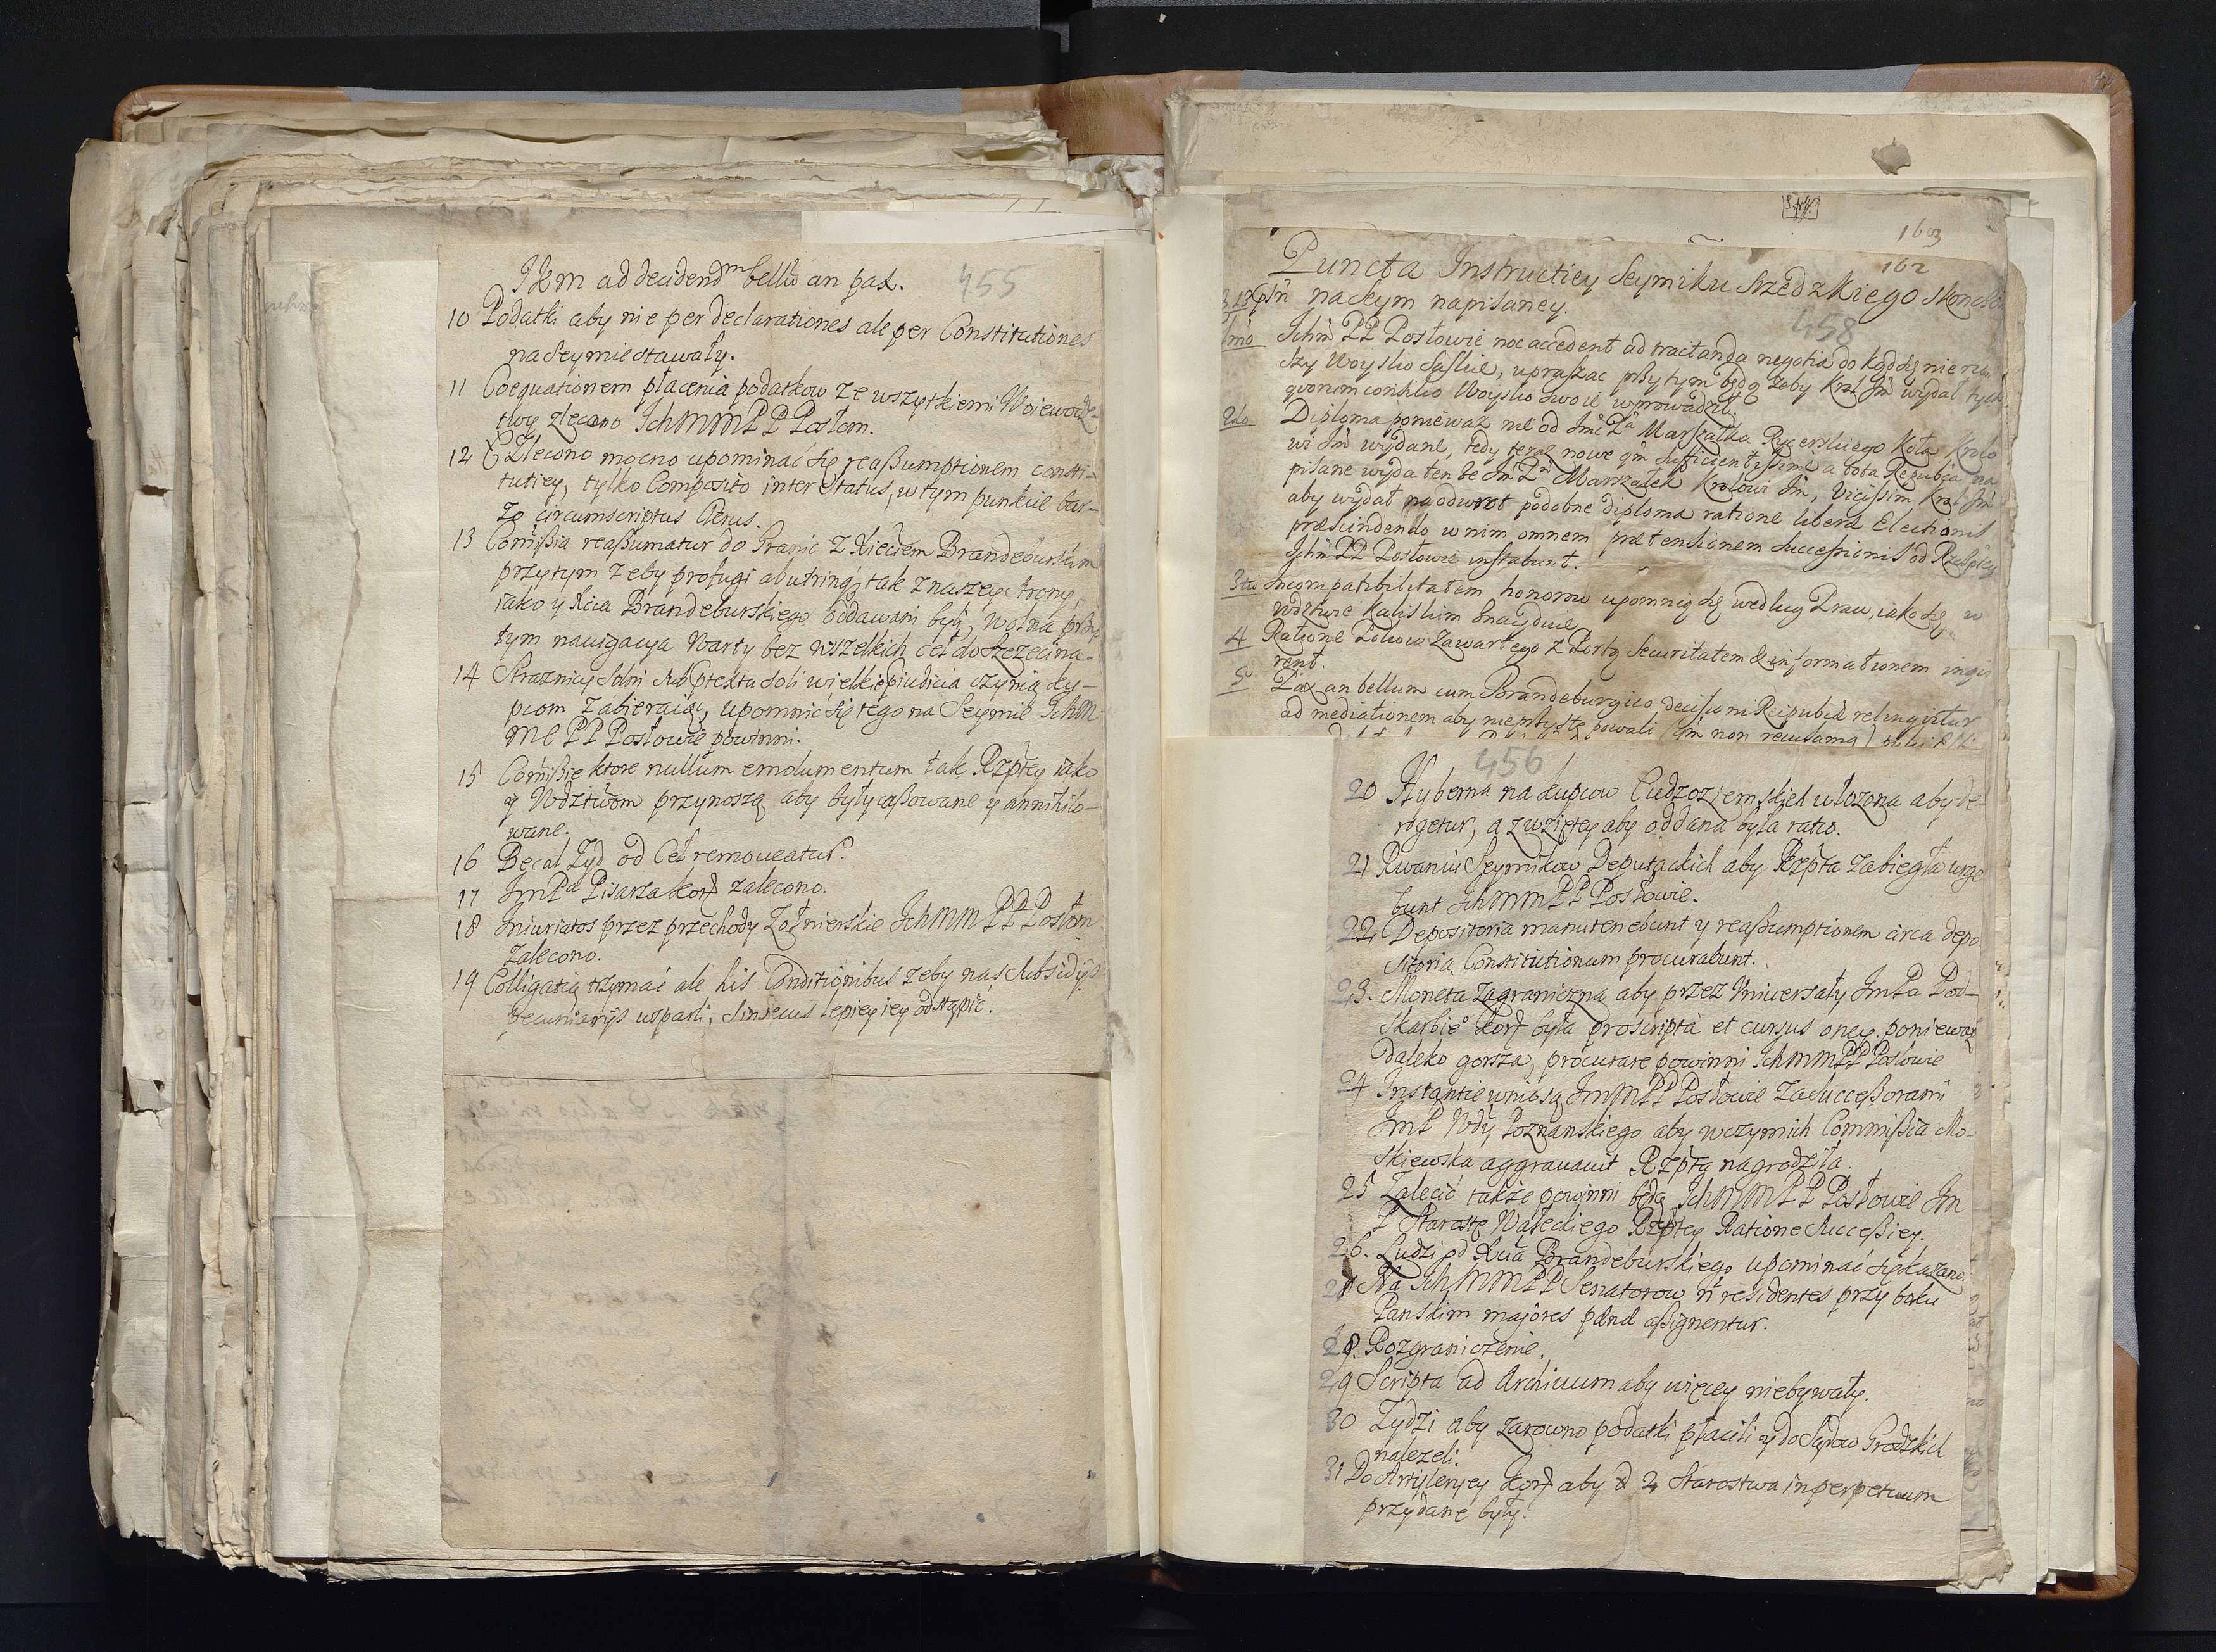 455
Jkm ad decidendm bellũ an pax.
10 Podatki aby nie per declarationes ale per Constitutiones
na Seymie stawały.
11 Coequationem płacenia podatkow ze wszytkiemi Woiewodz-
twy zlecono JchMMPP Posłom.
12 Zlecono mocno upominać się reaßumptionem consti-
tutiey, tylko Composito inter Status, w tym punkcie bar-
zo circumscriptus Clerus.
13 Comißia reaßumatur do Granic z Xięciem Brandeburskim
przytym zeby profugi ab utrinq, tak z naszey strony,
iako y Xcia Brandeburskiego oddawani byli, wolna przy
tym nawigacya Warty bez wszelkich ceł do Szczecina.
14 Straznicy Solni sub ptextu soli wielkie piudicia czynią ku-
pcom zabieraiąc, upomnieć się tego na Seymie Ichm
Mć PP Posłowie powinni.
15 Comißie ktore nullum emolumentum tak Rzptey iako
y Wdztwom przynoszą aby były caßowane y annihilo-
wane.
16 Becal Zyd od Ceł remoueatur.
17 JmPa Pisarza kor zalecono.
18 Iniuriatos przez przechody Zołnierskie JchMM PPP Posłom
zalecono.
19 Colligatią trzymać ale his Conditionibus zeby nas Subsidijs
pecuniarijs wsparli, sinsecus lepiey iey odstąpić.
1603
162
Puncta Instructiey Seymiku Srzedzkiego
na Seym napisaney.
458
1mo Ichm PP Posłowie non accedent ad tractanda negotia do kąd się nie
szy Woysko Saskie, upraszac przy tym będą zeby Krol Jm wydał tych
quorum consilio Woysko swoie wprowadził.
2do Diploma poniewaz nie od Jmć Pa Marszałka Rycerskiego Koła Krolo
wi Jm wydane, tedy teraz nowe qm sufficientißime a tota Republica na
pisane wyda ten ze Jm Pn Marszałek Krolowi Jm, Vicißim Krol Jm
aby wydał na odwrot podobne diploma ratione libera Electionis
præscindendo w nim omnem prætensionem Succeßionis od Rzeptey
Ichm PP Posłowie instabunt.
3tio Incompatibilitatem honorum upomnią się według Praw, iako się w
Wdztwie Kaliskim znayduie
4 Ratione Pokoiu zawartego z Portą Securitatem & informationem
rent.
5o Pax an bellum cum Brandeburgico
ad mediationem aby nie
456
20 Hyberna na kupcow Cudzoziemskich włozona aby de-
rogetur, a z wziętey aby oddana była ratio.
21 Rwaniu Seymikow Deputackich aby Rzpta zabiegła urge
bunt JchMMPP Posłowie.
22 Depositoria manutenebunt y reaßumptionem circa depo
sitoria Constitutionum procurabunt.
23. Moneta zagraniczna aby przez Vniwersały JmPa Pod-
skarbieo kor była proscripta et cursus oney, poniewaz
daleko gorsza, procurare powinni JchmmPP Posłowie
24 Instantie wniosą JmMPP Posłowie za Succeßorami
JmP Wdy Poznanskiego aby w czym ich Commißia Mo-
skiewska aggrauauit Rzpta nagrodziła.
25 Zalecić takze powinni będą JchMMPP Posłowie Jm
P Starostę Wałeckiego Rzptey Ratione Succeßiey.
26. Ludzi od Xcia Brandeburskiego upominać się kazano.
27 Na JchMMPP Senatorow n residentes przy boku
Panskim maiores pænæ aßignentur.
28. Rozgraniczenie.
29 Scripta ad Archiuum aby więcey niebywały.
30 Zydzi aby zarowno podatki płacili y do Sądow Grodzkich
nalezeli.
31 Do Artyleryey kor aby 2 Starostwa in perpetuum
przydane były.